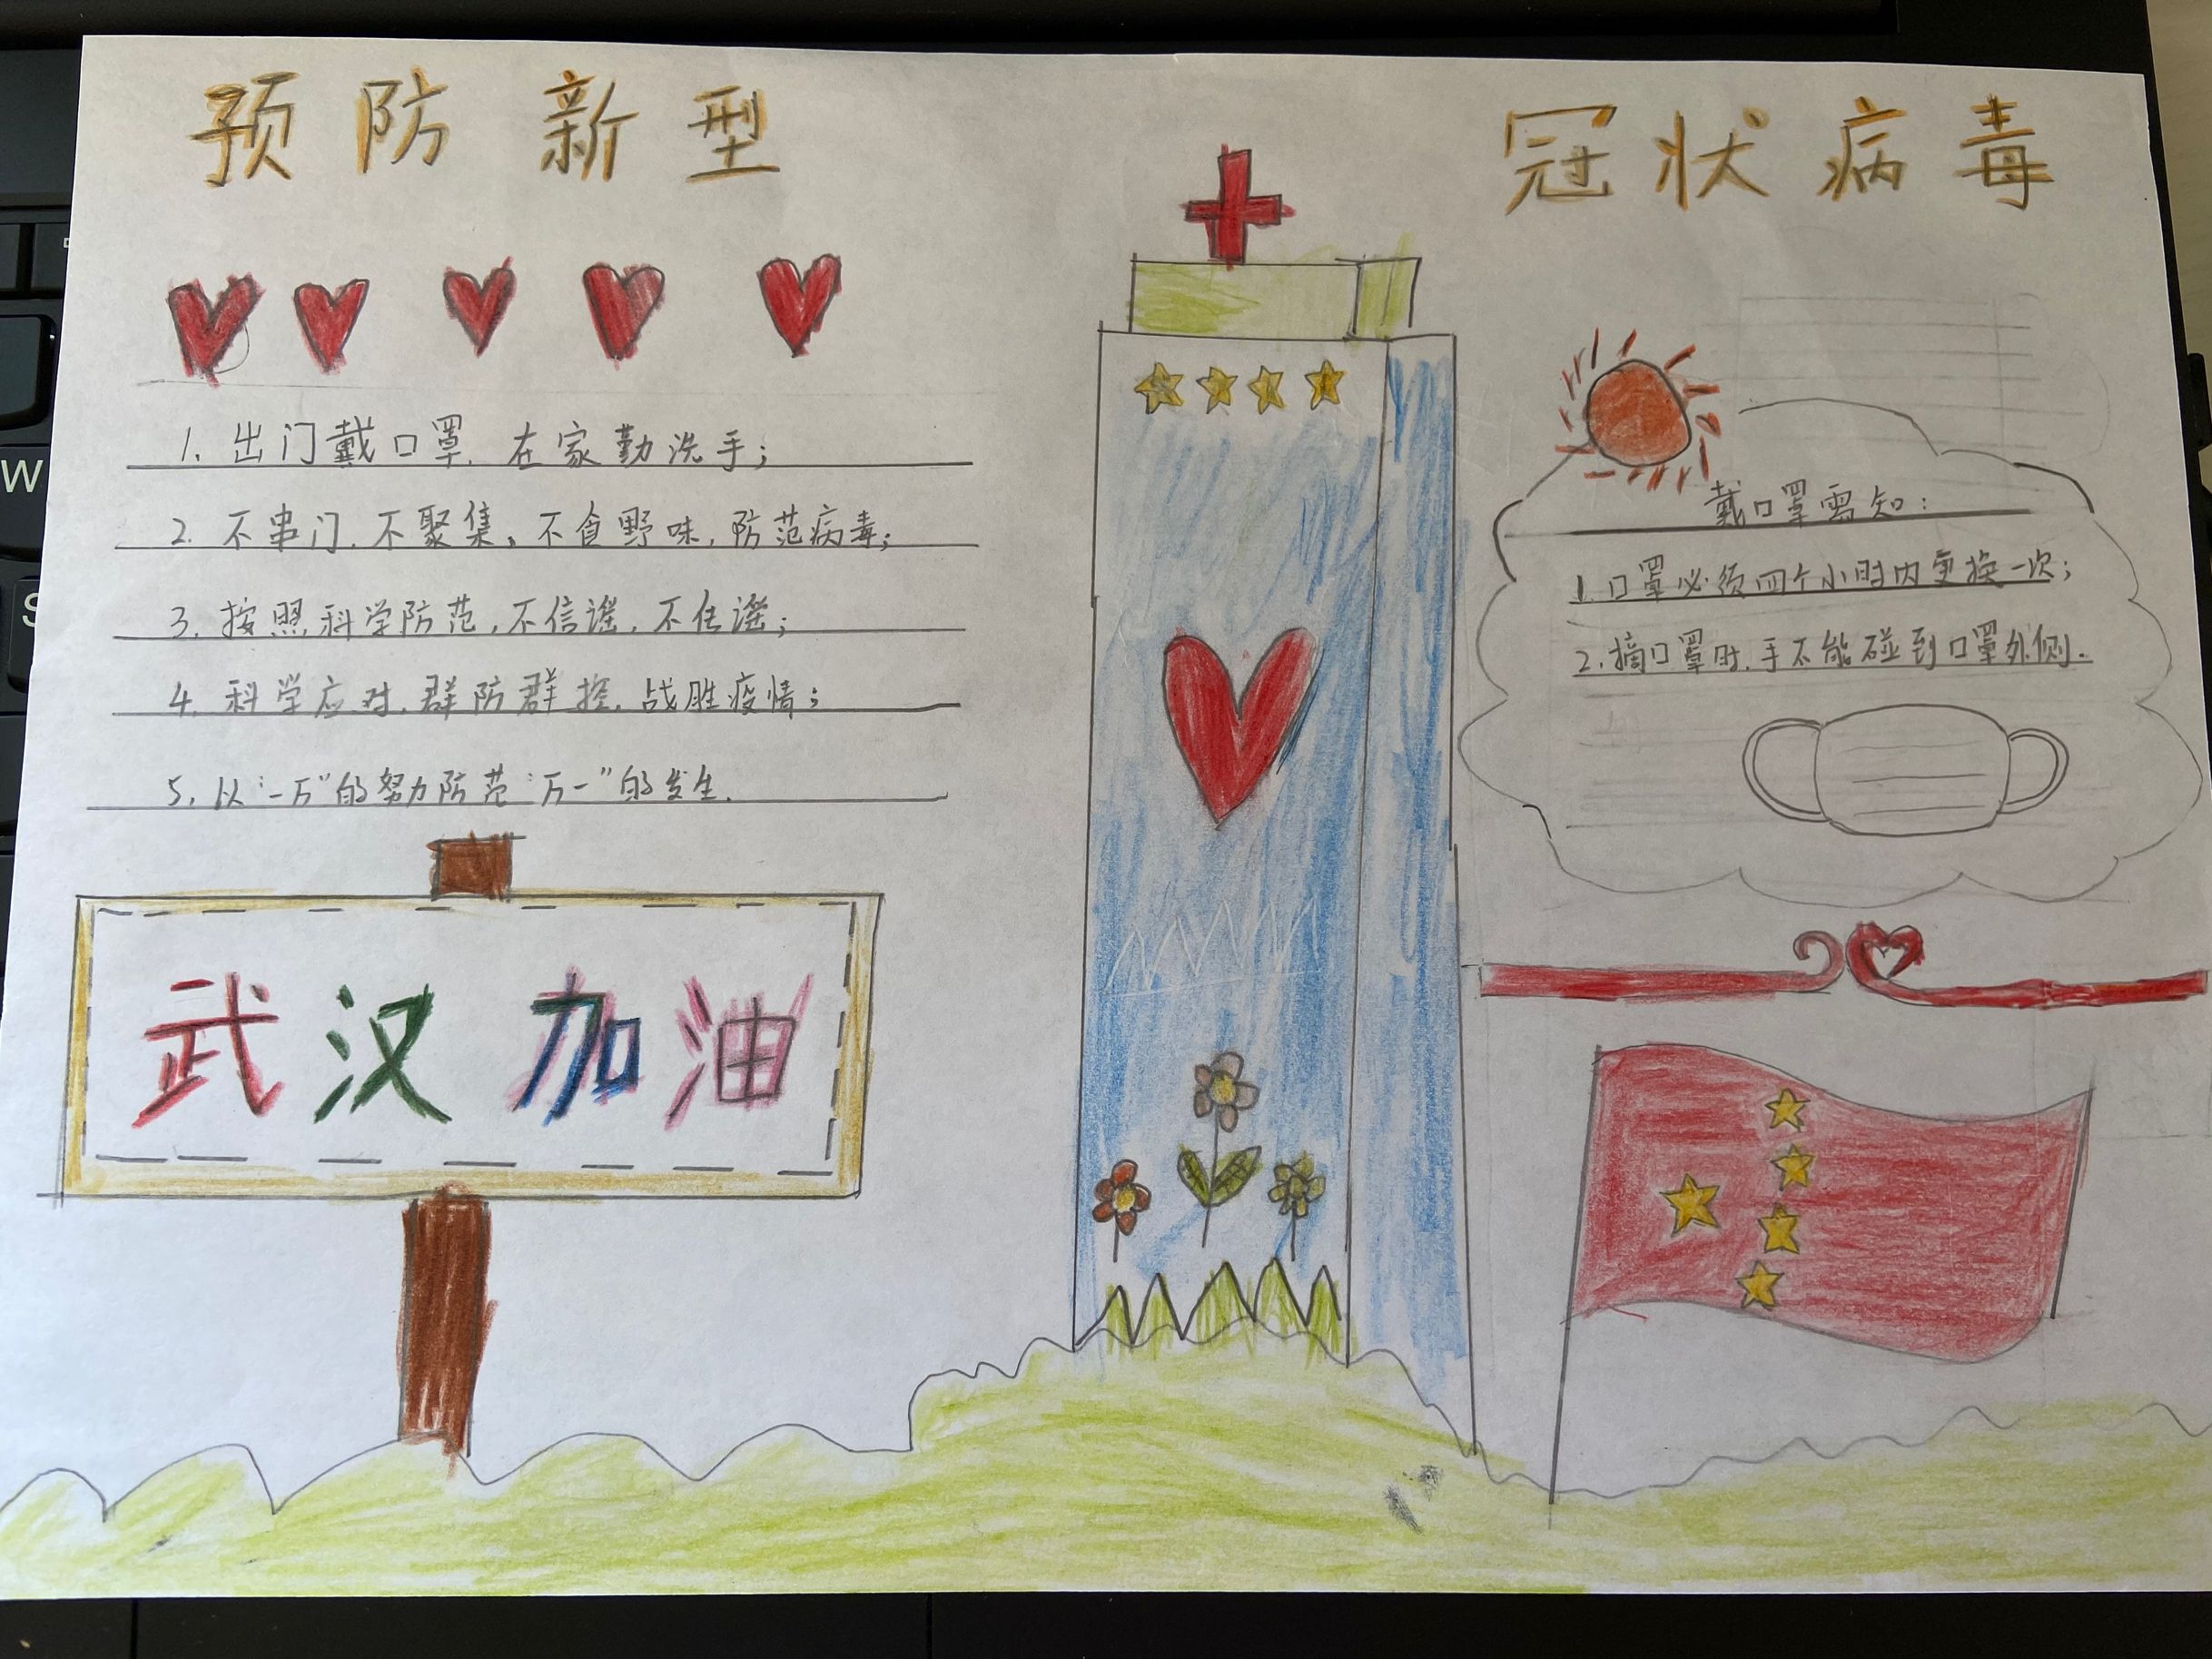 预防新型 冠状病毒
1. 出门戴口罩,在家勤洗手;
2. 不串门,不聚集,不食野味,防范病毒;
3. 按照科学防范,不信谣,不传谣;
4. 科学应对,群防群控,战胜疫情;
5. 以“一万”的努力防范“万一”的发生.
武汉加油
戴口罩需知:
1. 口罩必须四个小时内更换一次;
2. 摘口罩时,手不能碰到口罩外侧.
W
S